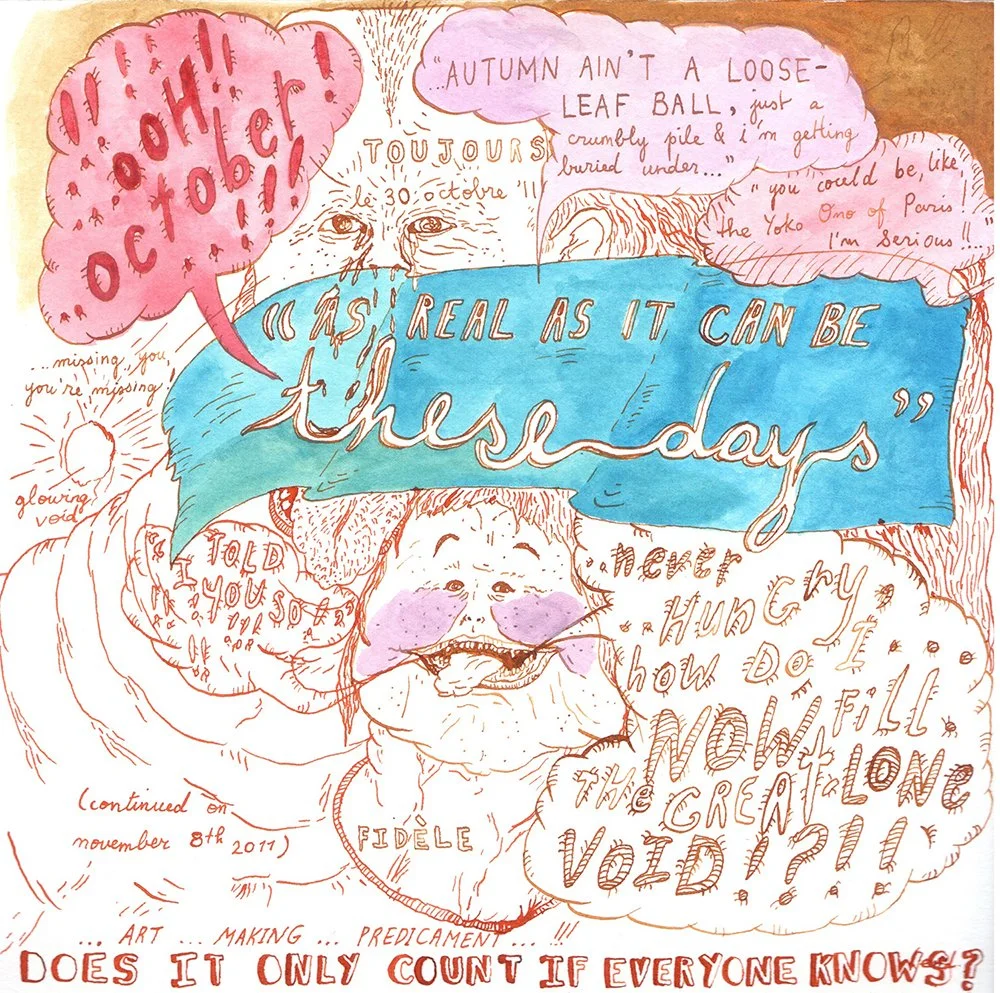 !! OOH!!
OCTOBER!
!!!
"...AUTUMN AIN'T A LOOSE-
LEAF BALL, just a
crumbly pile & i'm getting
buried under..."
TOÙJOURS
le 30 octobre '11
"you could be, like,
the Yoko Ono of Paris!
I'm Serious!!..."
"AS REAL AS IT CAN BE
these days"
...missing you,
you're missing!
glowing
void
I TOLD
YOU SO
...never
HUNGRY...
HOW DO I...
NOW FILL
THE GREAT ALONE
VOID!?!!
(continued on
november 8th 2011)
FIDÈLE
... ART ... MAKING ... PREDICAMENT ... !!!
DOES IT ONLY COUNT IF EVERYONE KNOWS?